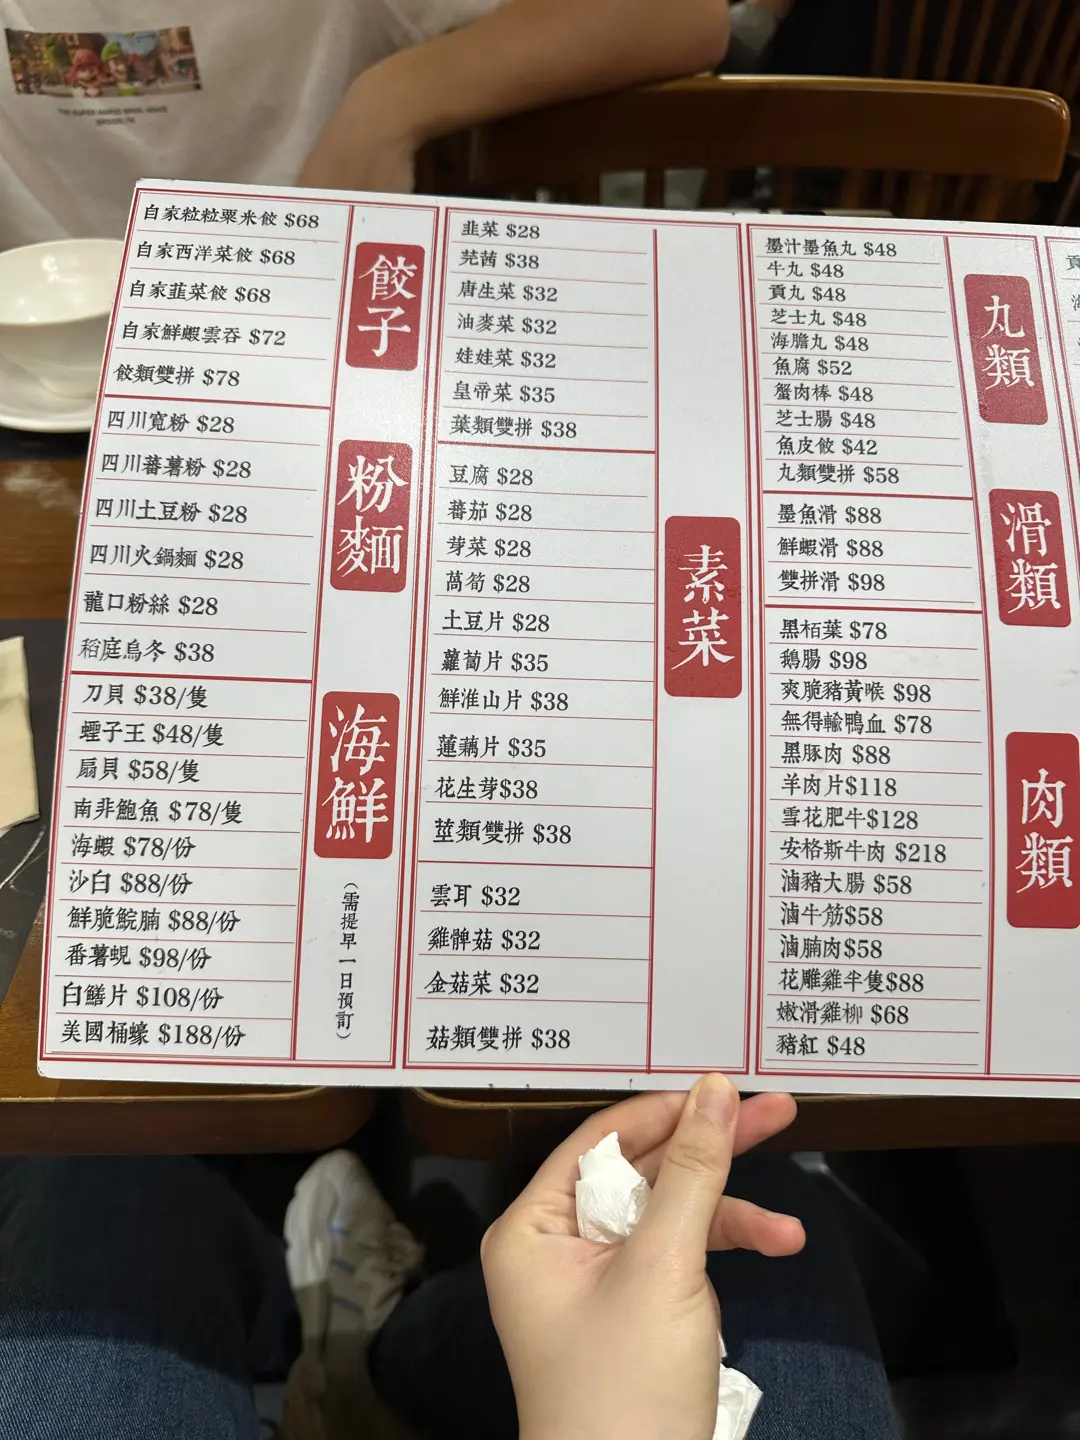 自家粒粒粟米餃 $68
自家西洋菜餃 $68
自家韮菜餃 $68
自家鮮蝦雲吞 $72
餃類雙拼 $78
餃子
四川寬粉 $28
四川蕃薯粉 $28
四川土豆粉 $28
四川火鍋麵 $28
龍口粉絲 $28
稻庭烏冬 $38
粉麵
刀貝 $38/隻
蟶子王 $48/隻
扇貝 $58/隻
南非鮑魚 $78/隻
海蝦 $78/份
沙白 $88/份
鮮脆鯇腩 $88/份
番薯蜆 $98/份
白鱔片 $108/份
美國桶蠔 $188/份
海鮮
（需提早一日預訂）
韭菜 $28
芫茜 $38
唐生菜 $32
油麥菜 $32
娃娃菜 $32
皇帝菜 $35
葉類雙拼 $38
豆腐 $28
蕃茄 $28
芽菜 $28
萵筍 $28
土豆片 $28
蘿蔔片 $35
鮮淮山片 $38
蓮藕片 $35
花生芽$38
莖類雙拼 $38
雲耳 $32
雞髀菇 $32
金菇菜 $32
菇類雙拼 $38
素菜
墨汁墨魚丸 $48
牛丸 $48
貢丸 $48
芝士丸 $48
海膽丸 $48
魚腐 $52
蟹肉棒 $48
芝士腸 $48
魚皮餃 $42
丸類雙拼 $58
丸類
墨魚滑 $88
鮮蝦滑 $88
雙拼滑 $98
滑類
黑栢葉 $78
鵝腸 $98
爽脆豬黃喉 $98
無得輸鴨血 $78
黑豚肉 $88
羊肉片$118
雪花肥牛$128
安格斯牛肉 $218
滷豬大腸 $58
滷牛筋$58
滷腩肉$58
花雕雞半隻$88
嫩滑雞柳 $68
豬紅 $48
肉類